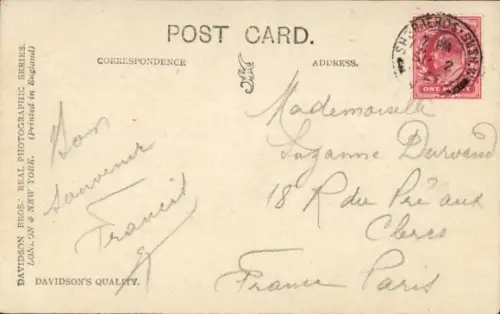 POST CARD.
CORRESPONDENCE
ADDRESS.
SHEPHERDS BUSH
PM
2
ONE PENNY
DAVIDSON BROS.' REAL PHOTOGRAPHIC SERIES.
LONDON & NEW YORK. (Printed in England)
Bon
Souvenir
Francis
DAVIDSON'S QUALITY.
Mademoiselle
Suzanne Durvand
18 R du Pré aux
Clercs
France Paris